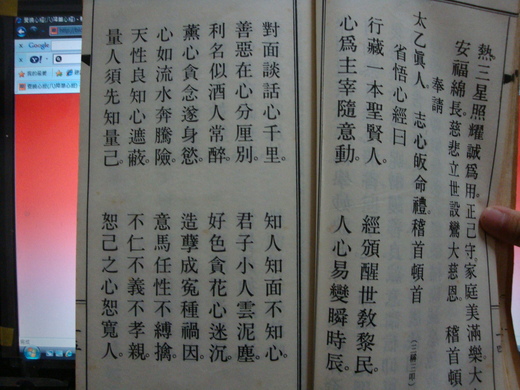 熱。三星照耀誠爲用。正己守。家庭美滿樂。大
安福綿長。慈悲立世。設鸞大慈恩。稽首頓首
奉請
太乙眞人。志心皈命禮。稽首頓首
省悟心經曰
行藏一本聖賢人。經頒醒世教黎民。
心爲主宰隨意動。人心易變瞬時辰。
對面談話心千里。知人知面不知心。
善惡在心分厘別。君子小人雲泥塵。
利名似酒人常醉。好色貪花心迷沉。
薰心貪念遂身慾。造孽成寃種禍因。
心如流水奔騰險。意馬任性不縛擒。
天性良知心遮蔽。不仁不義不孝親。
量人須先知量己。恕己之心恕寬人。
Google